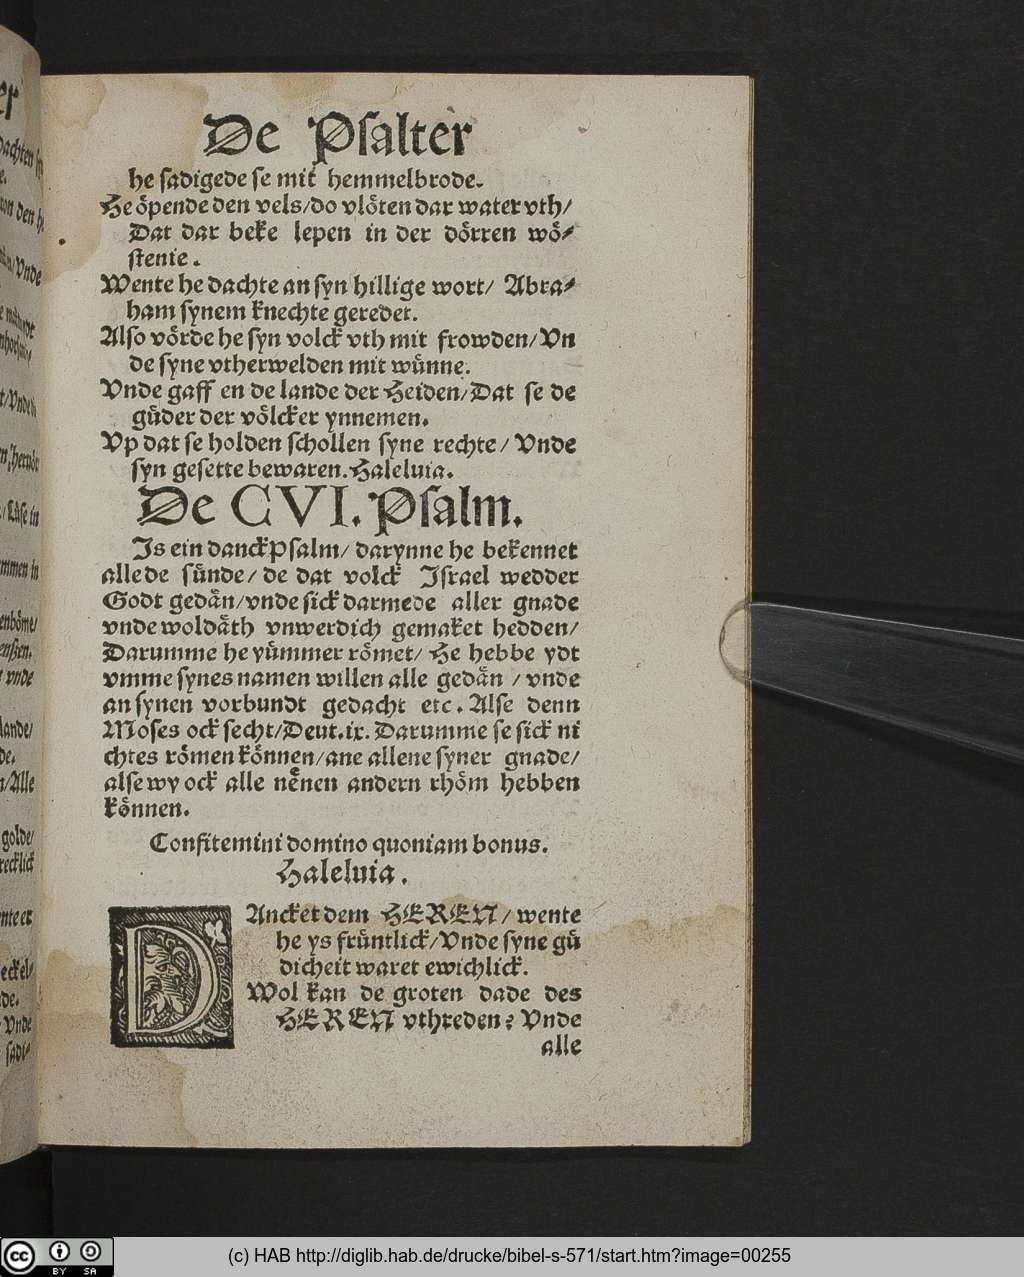 De Psalter
he sadigede se mit hemmelbrode.
He oͤpende den vels/do vloͤten dar water vth/
Dat dar beke lepen in der doͤrren woͤ⸗
stenie.
Wente he dachte an syn hillige wort/ Abra⸗
ham synem knechte geredet.
Also voͤrde he syn volck vth mit frowden/Vn
de syne vtherwelden mit wuͤnne.
Vnde gaff en de lande der Heiden/Dat se de
guͤder der voͤlcker ynnemen.
Vp dat se holden schollen syne rechte/ Vnde
syn gesette bewaren. Haleluia.
De CVI. Psalm.
Is ein danckPsalm/ darynne he bekennet
alle de suͤnde/ de dat volck Israel wedder
Godt gedaͤn/vnde sick darmede aller gnade
vnde woldaͤth vnwerdich gemaket hedden/
Darumme he yuͤmmer roͤmet/ He hebbe ydt
vmme synes namen willen alle gedaͤn / vnde
an synen vorbundt gedacht etc. Alse denn
Moses ock secht/Deut.ix. Darumme se sick ni
chtes roͤmen koͤnnen/ane allene syner gnade/
alse wy ock alle neͤnen andern rhoͤm hebben
koͤnnen.
Confitemini domino quoniam bonus.
Haleluia.
DAncket dem HEREN/ wente
he ys fruͤntlick/Vnde syne guͤ
dicheit waret ewichlick.
Wol kan de groten dade des
HEREN vthreden? Vnde
alle
(c) HAB http://diglib.hab.de/drucke/bibel-s-571/start.htm?image=00255
cc BY SA